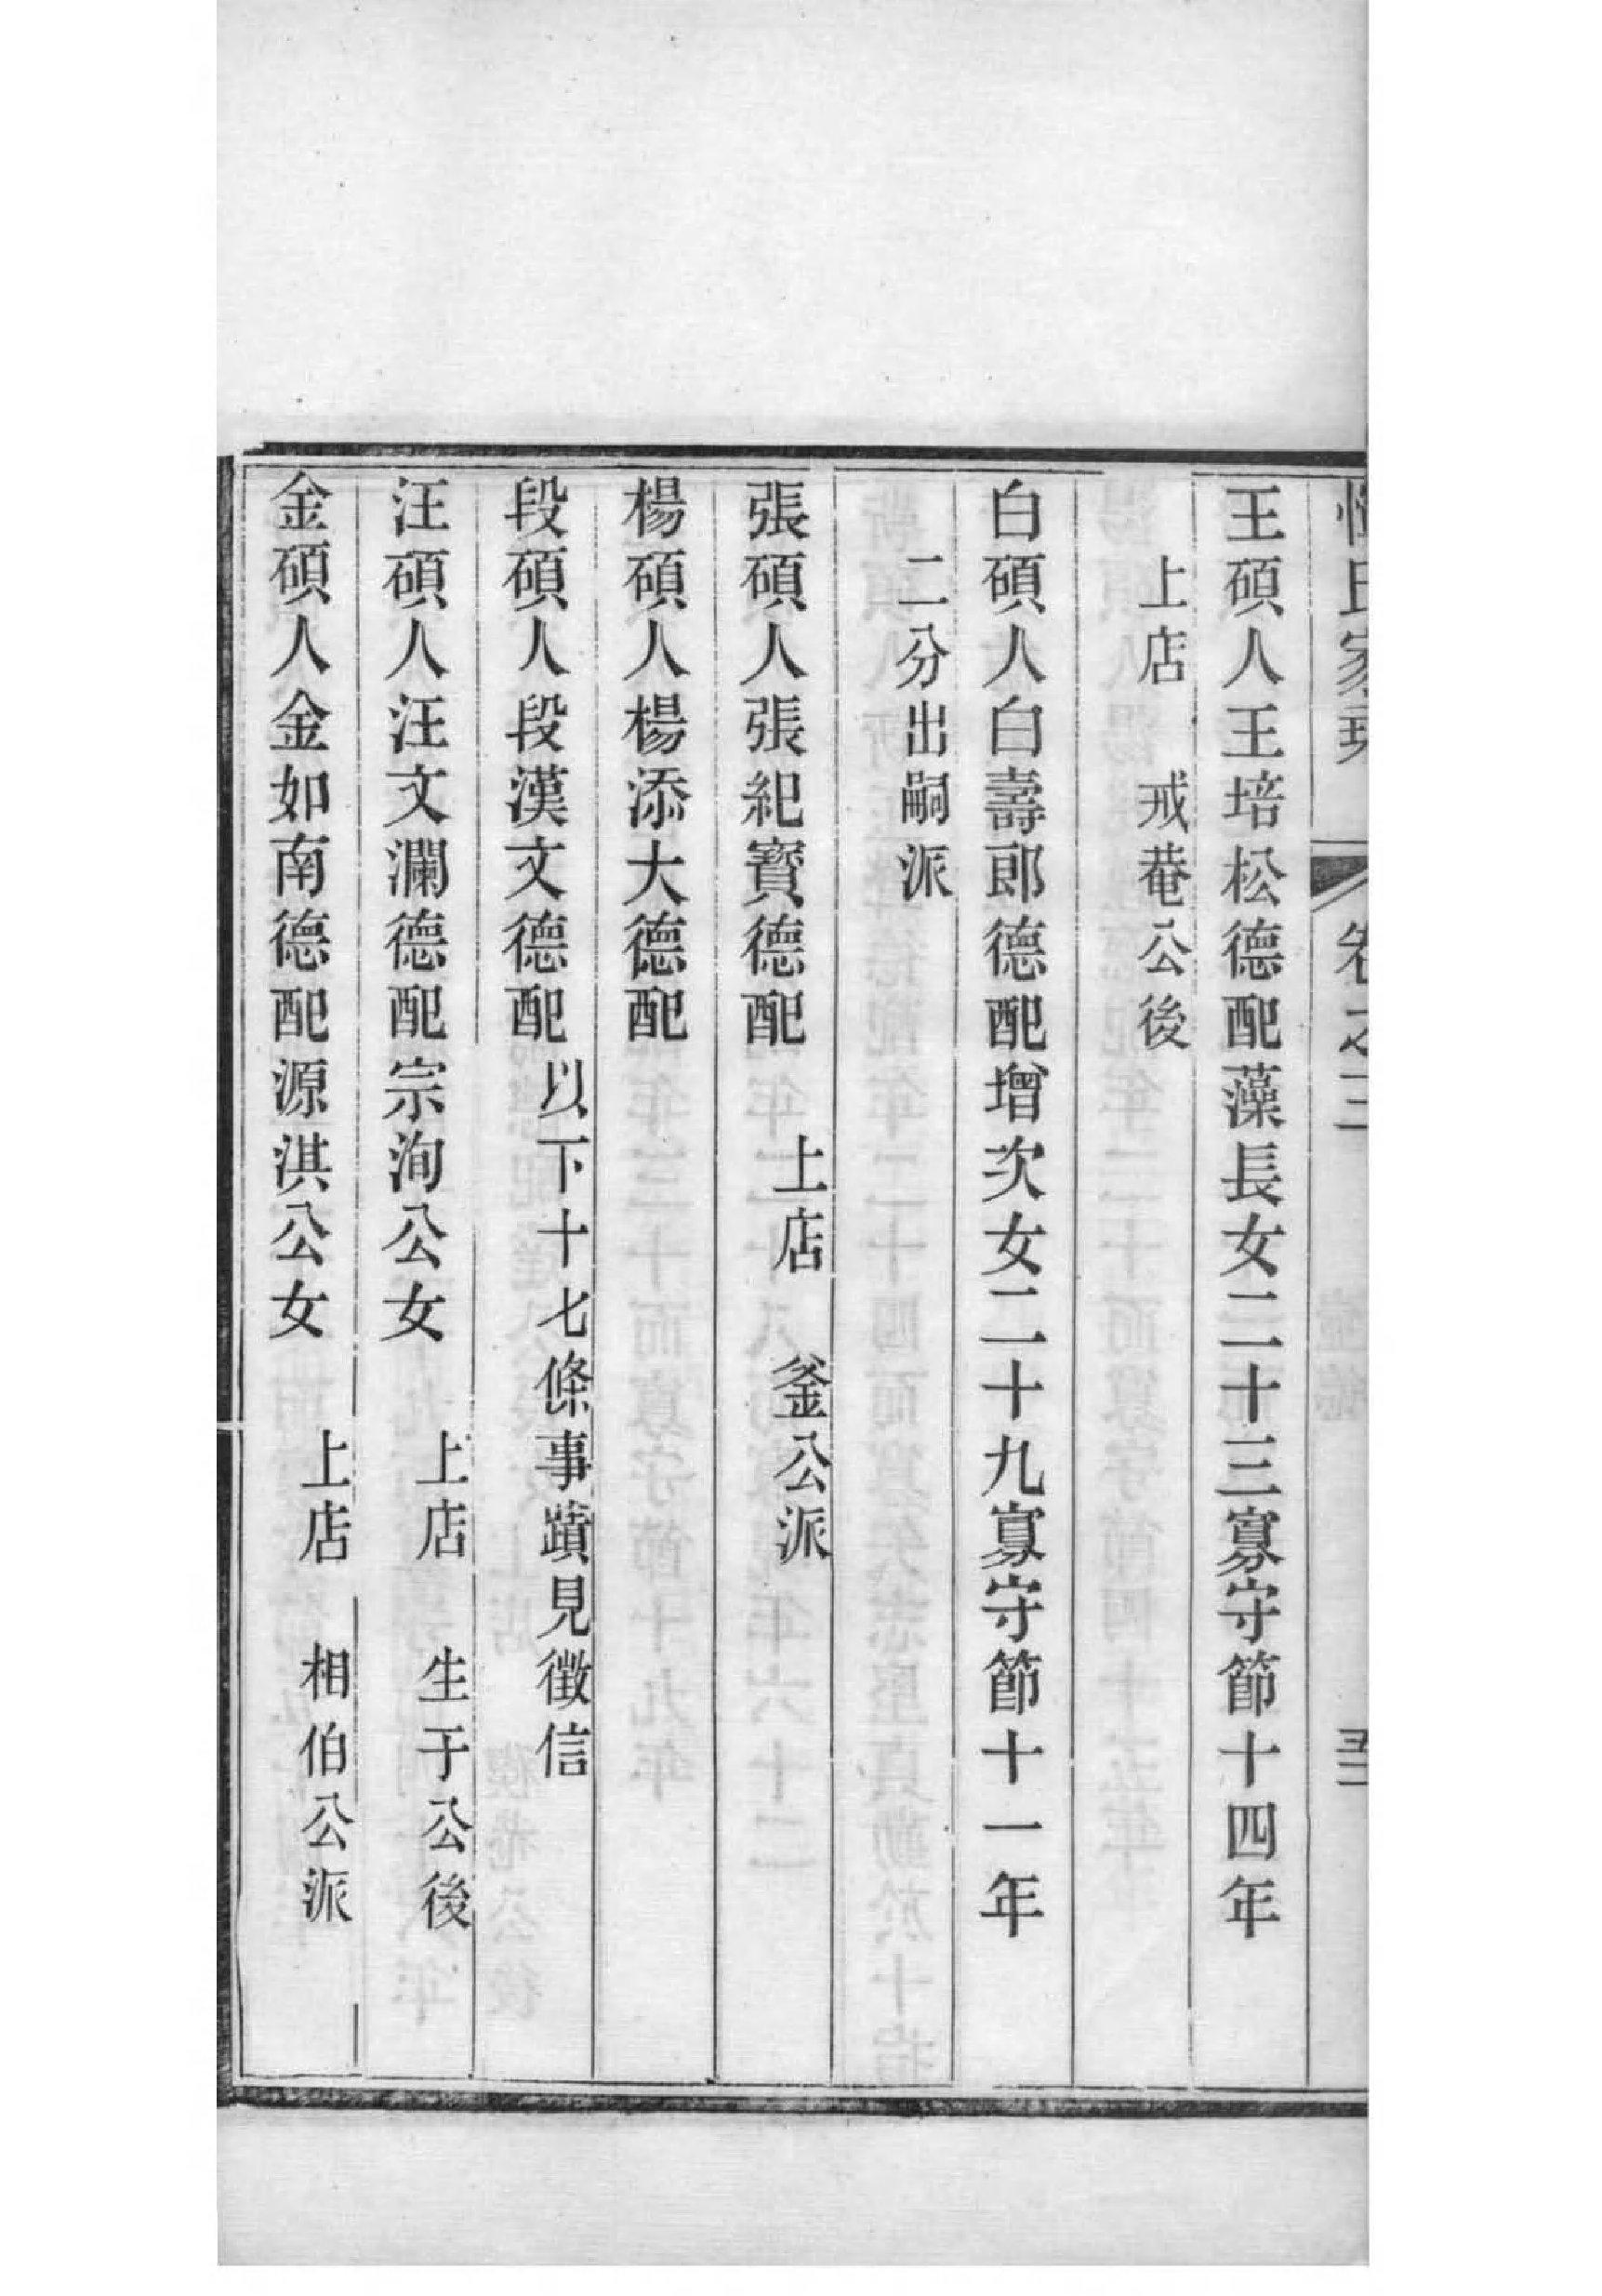 惲氏家乘 卷之三 五二
王碩人王培松德配藻長女二十三寡守節十四年
上店 戒菴公後
白碩人白壽郎德配增次女二十九寡守節十一年
二分出嗣派
張碩人張紀寶德配 上店 釜公派
楊碩人楊添大德配
段碩人段漢文德配 以下十七條事蹟見徵信
汪碩人汪文瀾德配宗洵公女 上店 生于公後
金碩人金如南德配源淇公女 上店 相伯公派